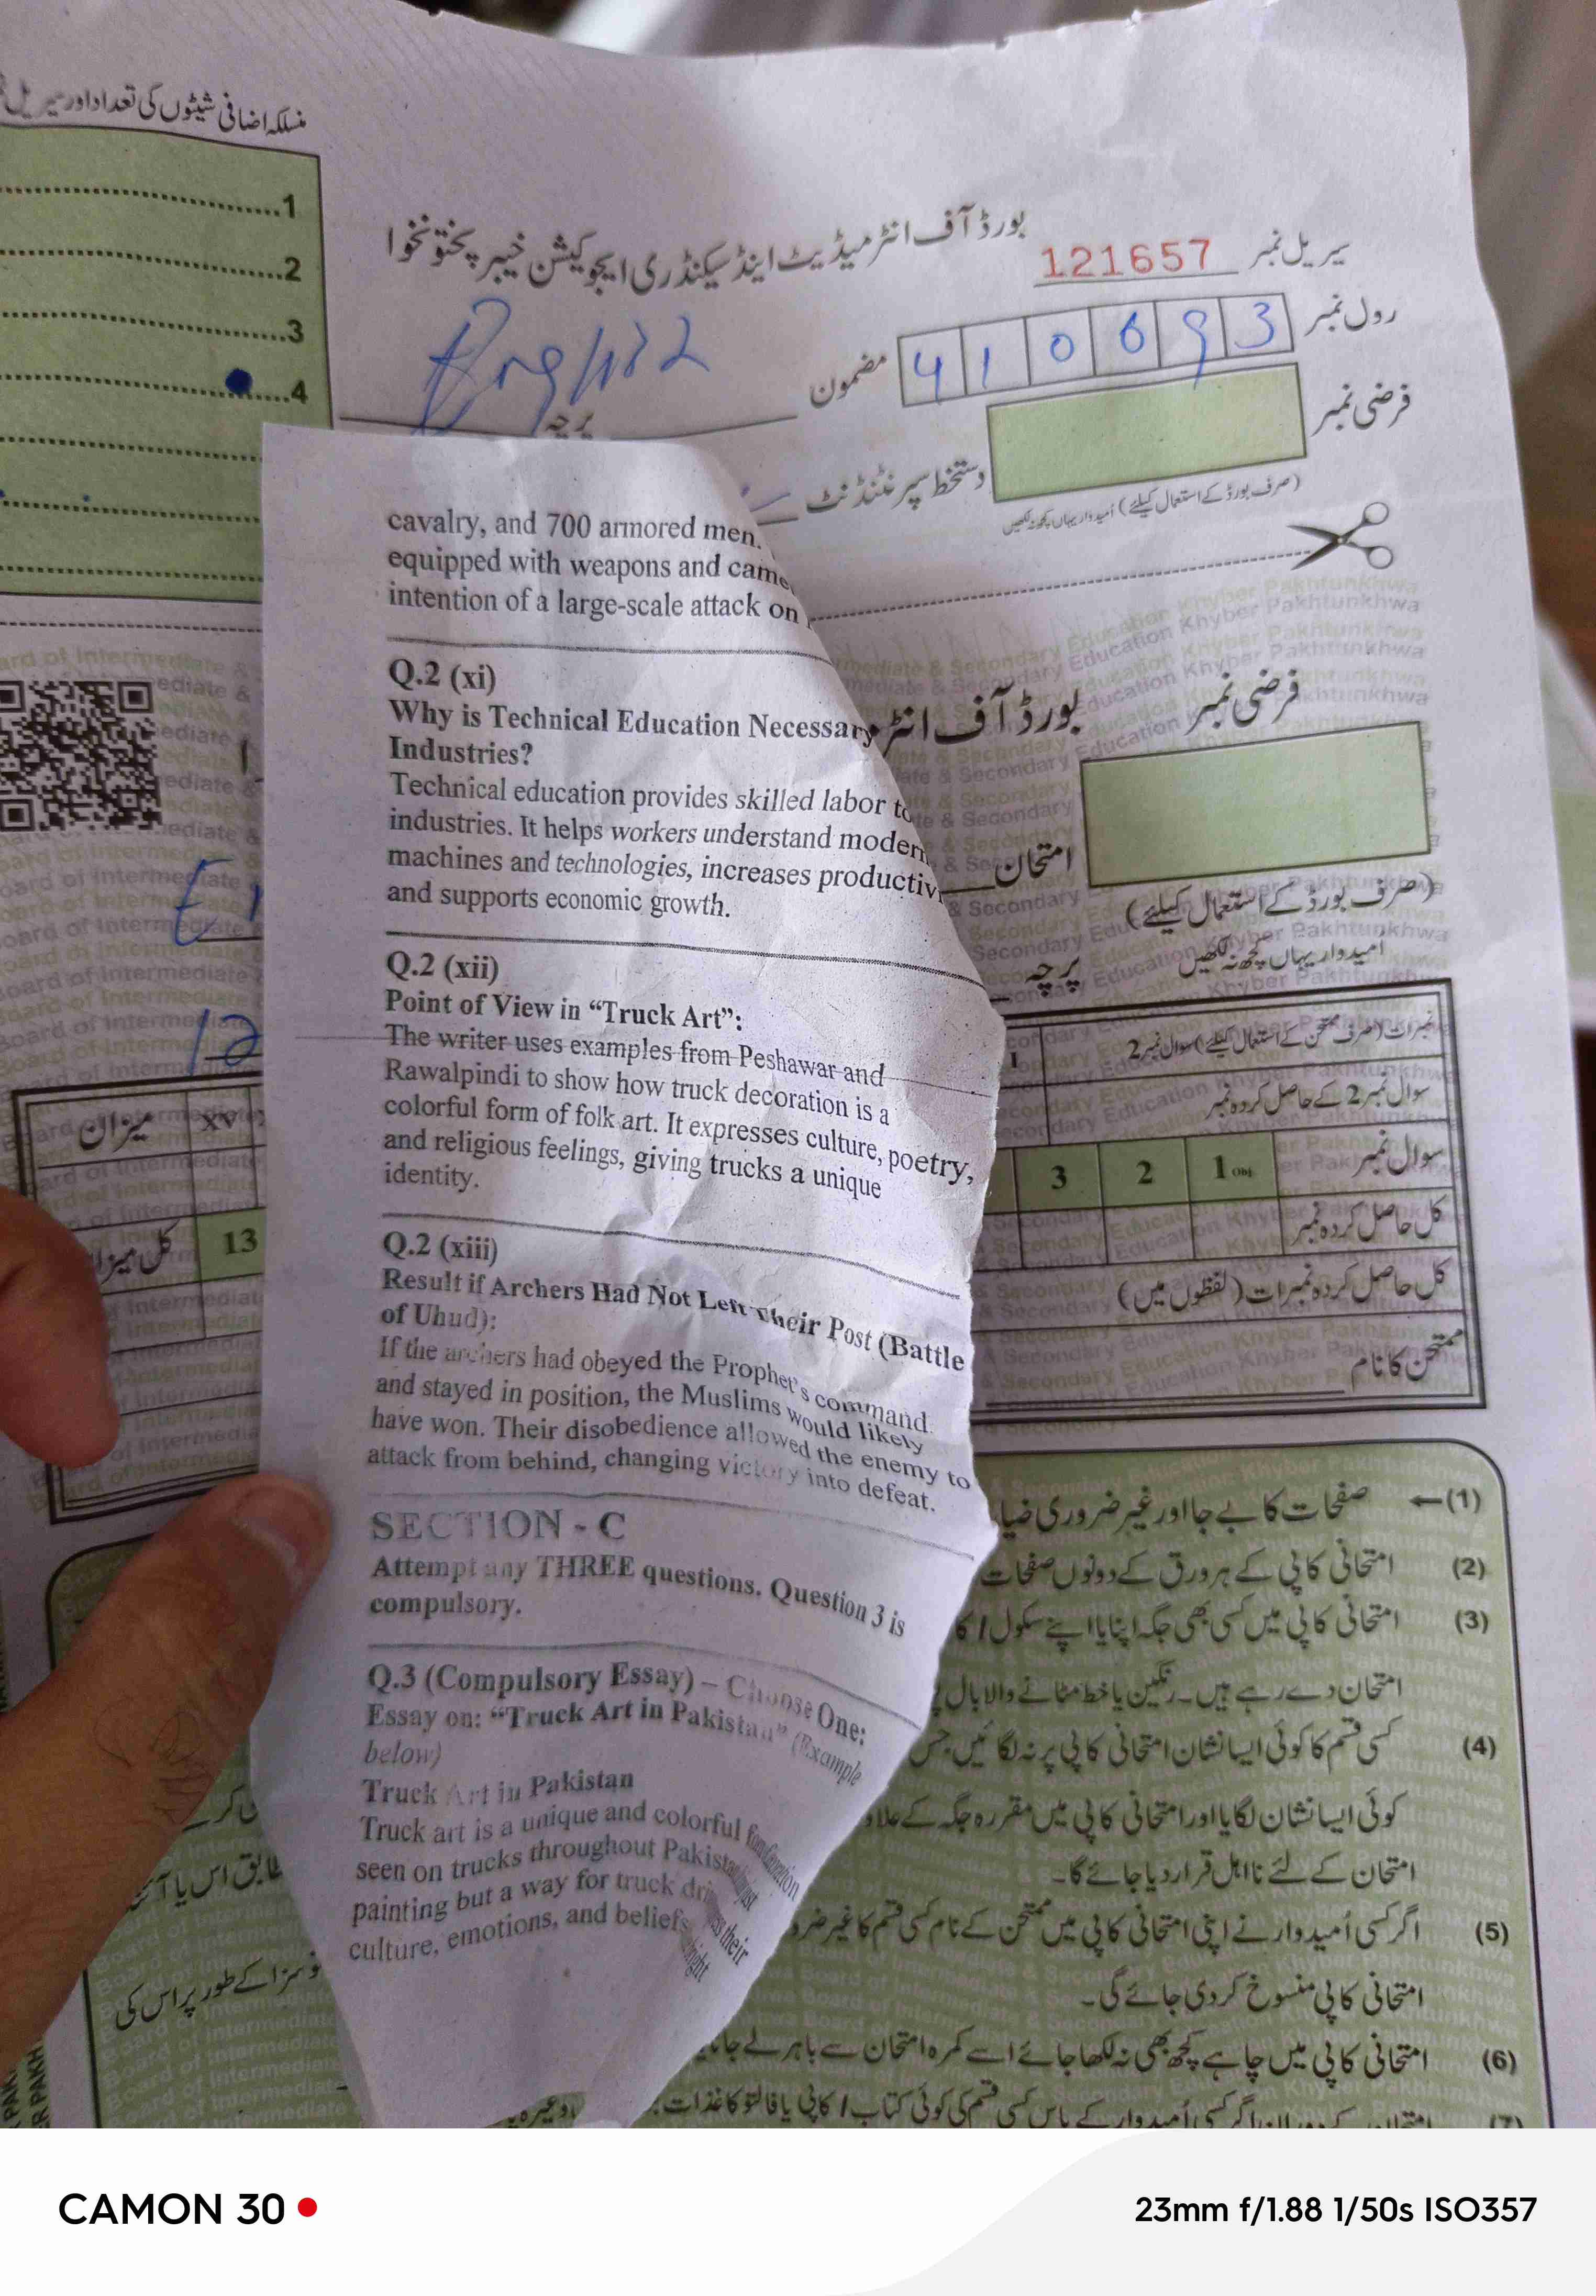 منسلکہ اضافی شیٹوں کی تعداد اور سیریل
1
2
3
4
بورڈ آف انٹرمیڈیٹ اینڈ سیکنڈری ایجوکیشن خیبر پختونخوا
سیریل نمبر 121657
رول نمبر 410693
مضمون
پرچہ
فرضی نمبر
دستخط سپرنٹنڈنٹ
(صرف بورڈ کے استعمال کیلئے) امیدوار یہاں کچھ نہ لکھیں
cavalry, and 700 armored men.
equipped with weapons and came
intention of a large-scale attack on
Q.2 (xi)
Why is Technical Education Necessary
Industries?
Technical education provides skilled labor to
industries. It helps workers understand modern
machines and technologies, increases productiv
and supports economic growth.
Q.2 (xii)
Point of View in “Truck Art”:
The writer uses examples from Peshawar and
Rawalpindi to show how truck decoration is a
colorful form of folk art. It expresses culture, poetry,
and religious feelings, giving trucks a unique
identity.
Q.2 (xiii)
Result if Archers Had Not Left Their Post (Battle
of Uhud):
If the archers had obeyed the Prophet's command
and stayed in position, the Muslims would likely
have won. Their disobedience allowed the enemy to
attack from behind, changing victory into defeat.
SECTION - C
Attempt any THREE questions. Question 3 is
compulsory.
Q.3 (Compulsory Essay) – Choose One:
Essay on: “Truck Art in Pakistan” (Example
below)
Truck Art in Pakistan
Truck art is a unique and colorful
seen on trucks throughout Pakistan
painting but a way for truck their
culture, emotions, and beliefs
فرضی نمبر
بورڈ آف انٹر
امتحان
(صرف بورڈ کے استعمال کیلئے)
امیدوار یہاں کچھ نہ لکھیں
پرچہ
12
نمبرات (صرف ممتحن کے استعمال کیلئے) سوال نمبر 2
سوال نمبر 2 کے حاصل کردہ نمبر
سوال نمبر 1 Obj 2 3
کل حاصل کردہ نمبر
کل حاصل کردہ نمبرات (لفظوں میں)
ممتحن کا نام
میزان XV
کل میزان 13
(1) صفحات کا بے جا اور غیر ضروری
(2) امتحانی کاپی کے ہر ورق کے دونوں صفحات
(3) امتحانی کاپی میں کسی بھی جگہ اپنا یا اپنے سکول /
امتحان دے رہے ہیں۔ رنگین یا خط مٹانے والا بال
(4) کسی قسم کا کوئی ایسا نشان امتحانی کاپی پر نہ لگائیں جس
کوئی ایسا نشان لگایا اور امتحانی کاپی میں مقررہ جگہ کے علاوہ
امتحان کے لئے نااہل قرار دیا جائے گا۔
(5) اگر کسی اُمیدوار نے اپنی امتحانی کاپی میں ممتحن کے نام کسی قسم کا غیر
امتحانی کاپی منسوخ کر دی جائے گی۔
(6) امتحانی کاپی میں چاہے کچھ بھی نہ لکھا جائے اسے کمرہ امتحان سے باہر لے
CAMON 30
23mm f/1.88 1/50s ISO357